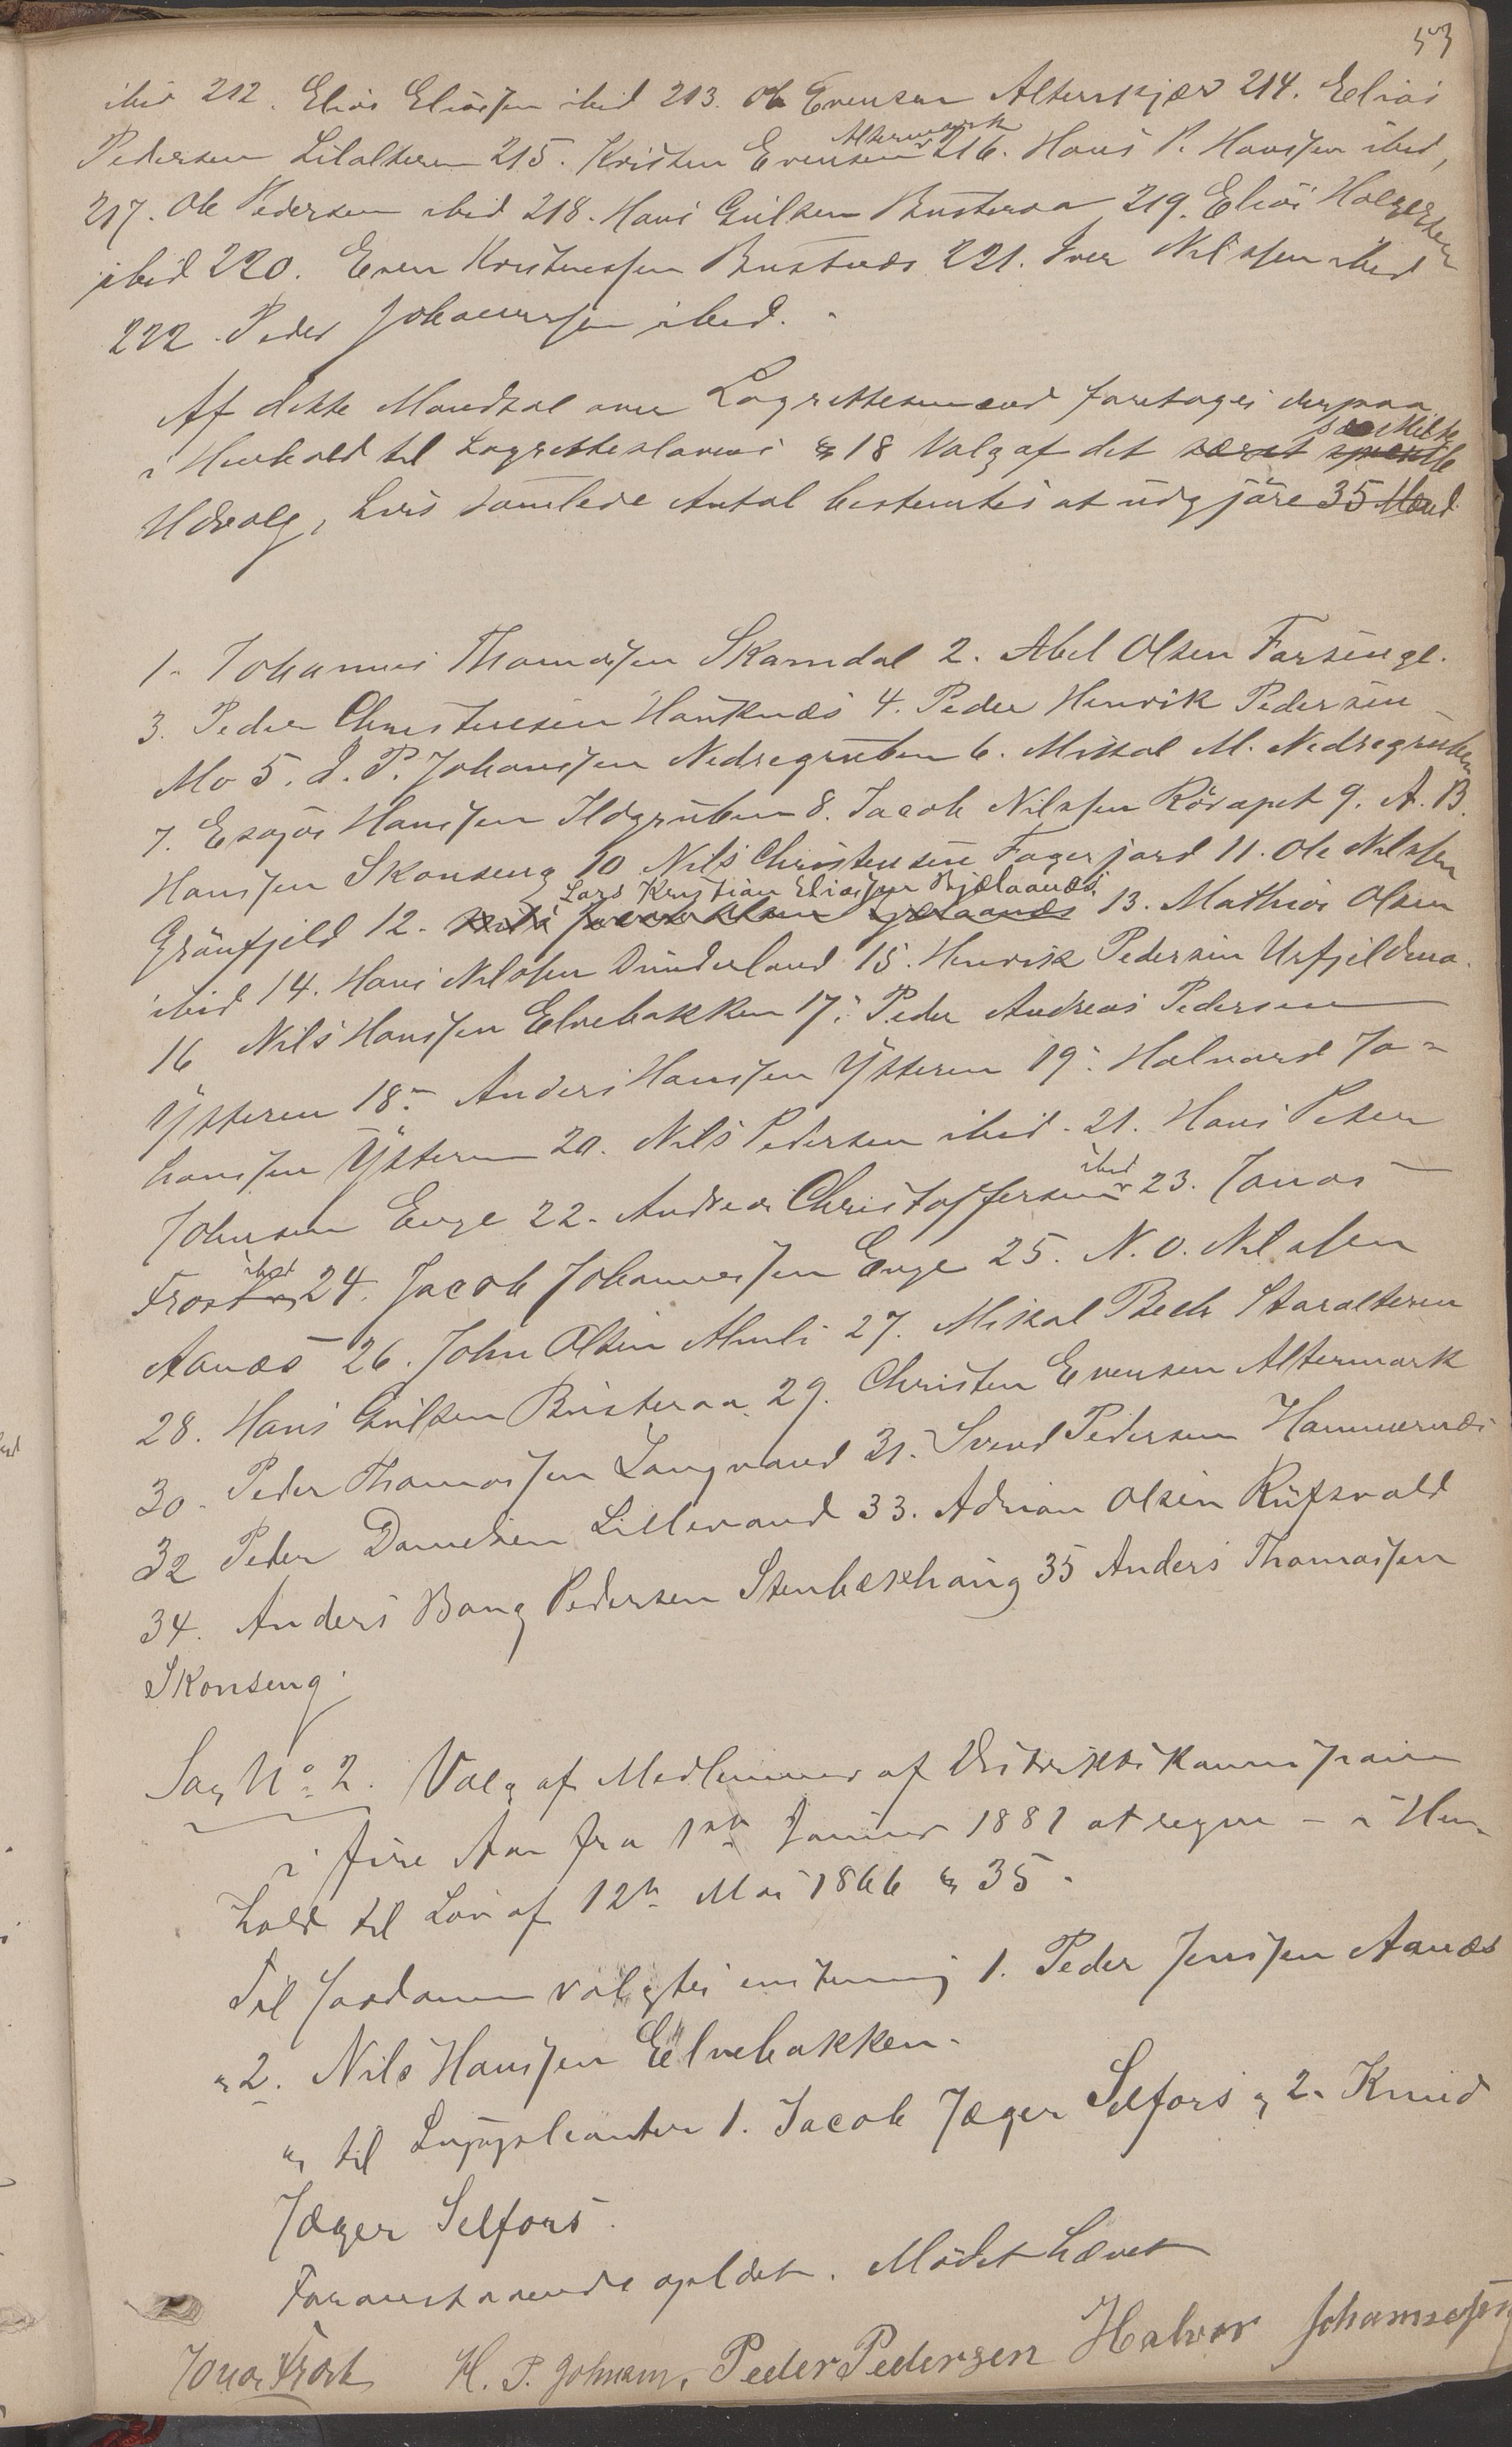 53
ibid 212. Elias Eliassen ibid 213. Ole Evensen Alterskjær 214. Elias
Pedersen Lilalteren 215. Kristen Evensen Altermark 216. Hans P. Hanssen ibid,
217. Ole Pedersen ibid 218. Hans Gulksen Busteraa 219. Elias Holgersen
ibid 220. Even Kristenssen Bustnæs 221. Iver Nilssen ibid
222. Peder Johanessen ibid.
Af dette Mandtal over Lagrettesmænd foretoges derpaa
i Henhold til Lagrettelovens § 18 Valg af det særskilte
Udvalg, hvis samlede Antal bestemtes at udgjöre 35 Mænd
1. Johannes Thomassen Skamdal 2. Abel Olsen Farsengl.
3. Peder Christensen Hauknæs 4. Peder Henrik Pedersen
Mo 5. J. P. Johanssen Nedregruben 6. Mikal M. Nedregruben
7. Esajas Hanssen Ildgruben 8. Jacob Nilssen Rövapet 9. A. B.
Hanssen Skonseng 10 Nils Christensen Fagerjord 11. Ole Nilssen
Grönfjeld 12. Lars Kristian Eliassen Bjelaanæs 13. Mathias Olsen
ibid 14. Hans Nilssen Dunderland 15. Henrik Pedersen Urfjeldmo.
16 Nils Hanssen Elvebakken 17. Peder Andreas Pedersen
Ytteren 18. Anders Hanssen Ytteren 19. Halvard Jo-
hanssen Ytteren 20. Nils Pedersen ibid. 21. Hans Peter
Johnsen Enge 22. Andreas Christoffersen ibid 23. Jonas
Frost ibid 24. Jacob Johannessen Enge 25. N. O. Nilssen
Aanæs 26. John Olsen Almli 27. Mikal Bech Storalteren
28. Hans Gulksen Busteraa 29. Christen Evensen Altermark
30. Peder Thomassen Langvand 31. Svend Pedersen Hammernæs
32 Peder Danielsen Lillevand 33. Adrian Olsen Rufsvold
34. Anders Bang Pedersen Stenbækhaug 35 Anders Thomassen
Skonseng.
Sag No. 2. Valg af Medlemmer af Distriktskommission
i fire Aar fra 1ste Januar 1881 at regne - i Hen-
hold til Lov af 12te Mai 1866 § 35.
Til valgtes enstemmig 1. Peder Jenssen Aanæs
" 2. Nils Hanssen Elvebakken.
" til Suppleanter 1. Jacob Jæger Selfors og 2. Knud
Jæger Selfors.
Foranstaaende oplæst. Mödet hævet
Jonas Frost H. P. Johnsen, Peder Pedersen Halvor Johannessen